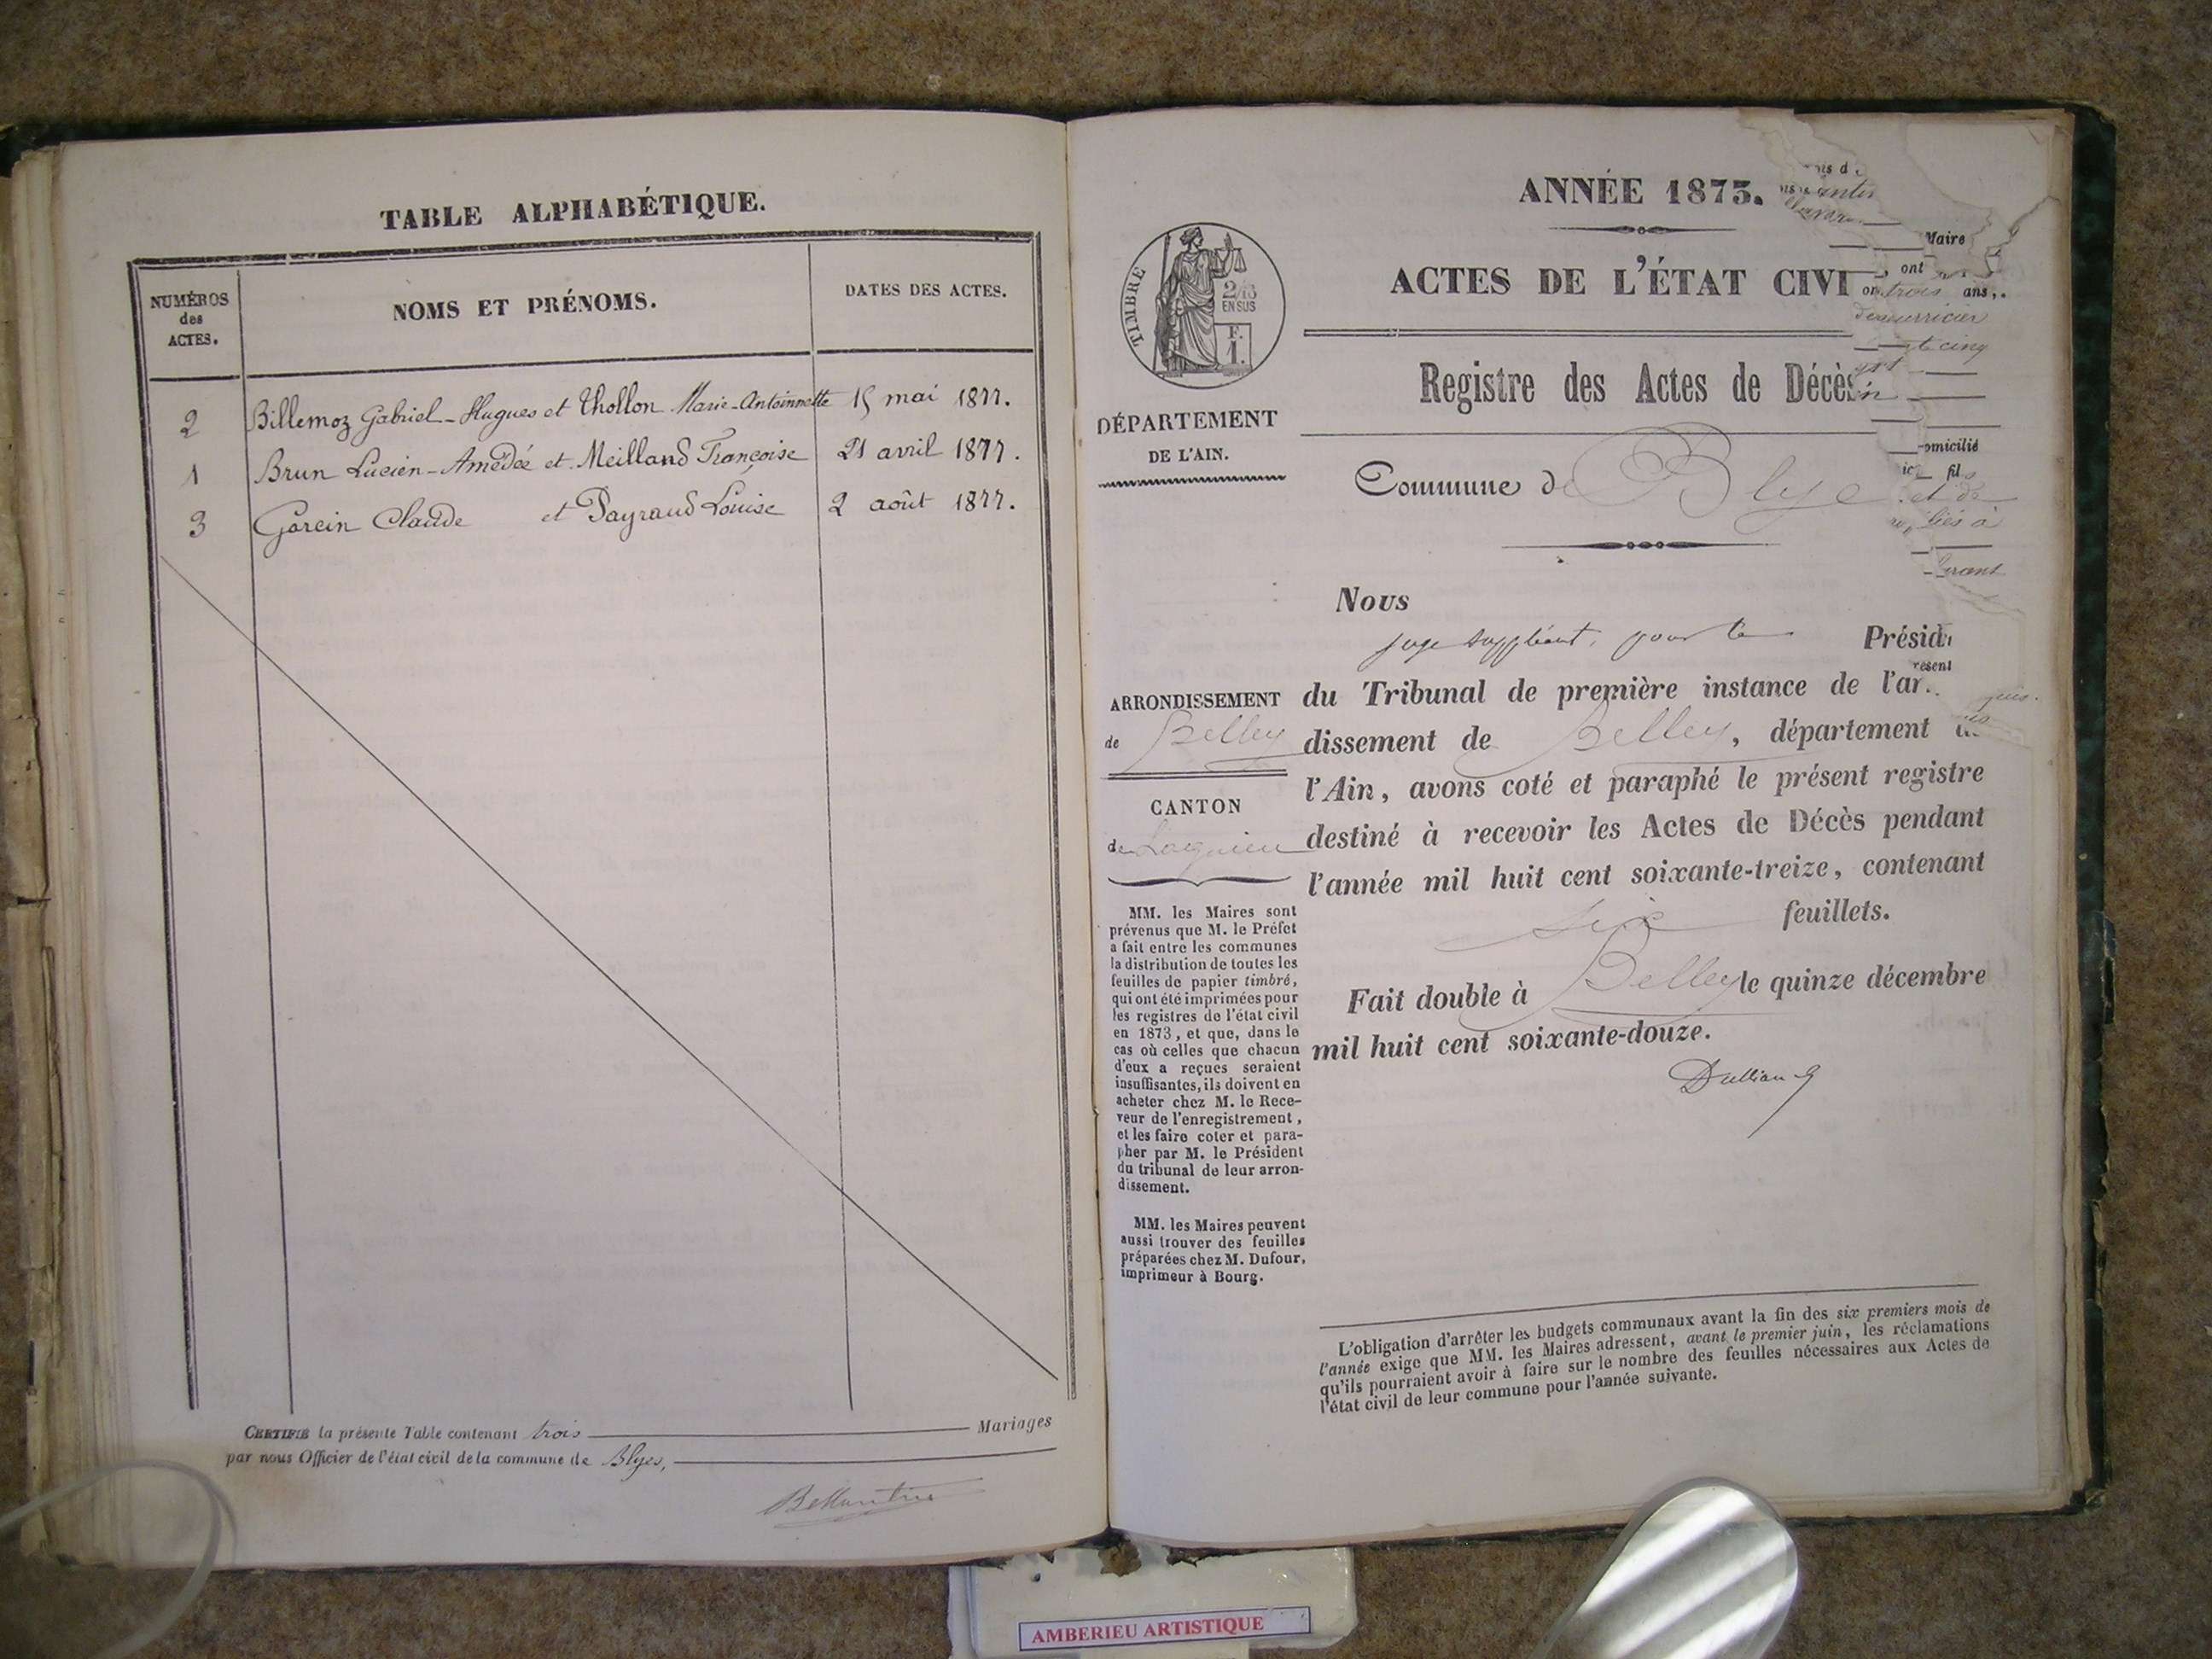 TABLE ALPHABÉTIQUE.
NUMÉROS
des
ACTES.
NOMS ET PRÉNOMS.
DATES DES ACTES.
2 Billemoz Gabriel-Hugues et Thollon Marie-Antoinnette 15 mai 1877.
1 Brun Lucien-Amédée et Meilland Françoise 21 avril 1877.
3 Garcin Claude et Payraud Louise 2 août 1877.
CERTIFIÉ la présente Table contenant trois Mariages
par nous Officier de l'état civil de la commune de Blyes,
ANNÉE 1873.
ACTES DE L'ÉTAT CIVI
TIMBRE
2/10
EN SUS
F.
1.
Registre des Actes de Décès
DÉPARTEMENT
DE L'AIN.
Commune de Blye
Nous
juge suppléant, pour le Présid
ARRONDISSEMENT
de Belley
CANTON
de Lagnieu
du Tribunal de première instance de l'ar
dissement de Belley, département d
l'Ain, avons coté et paraphé le présent registre
destiné à recevoir les Actes de Décès pendant
l'année mil huit cent soixante-treize, contenant
six feuillets.
Fait double à Belley le quinze décembre
mil huit cent soixante-douze.
MM. les Maires sont
prévenus que M. le Préfet
a fait entre les communes
la distribution de toutes les
feuilles de papier timbré,
qui ont été imprimées pour
les registres de l'état civil
en 1873, et que, dans le
cas où celles que chacun
d'eux a reçues seraient
insuffisantes, ils doivent en
acheter chez M. le Rece-
veur de l'enregistrement,
et les faire coter et para-
pher par M. le Président
du tribunal de leur arron-
dissement.
MM. les Maires peuvent
aussi trouver des feuilles
préparées chez M. Dufour,
imprimeur à Bourg.
L'obligation d'arrêter les budgets communaux avant la fin des six premiers mois de
l'année exige que MM. les Maires adressent, avant le premier juin, les réclamations
qu'ils pourraient avoir à faire sur le nombre des feuilles nécessaires aux Actes de
l'état civil de leur commune pour l'année suivante.
Maire
ont
trois ans,
cinq
omicilié
fil
et de
liés à
AMBERIEU ARTISTIQUE